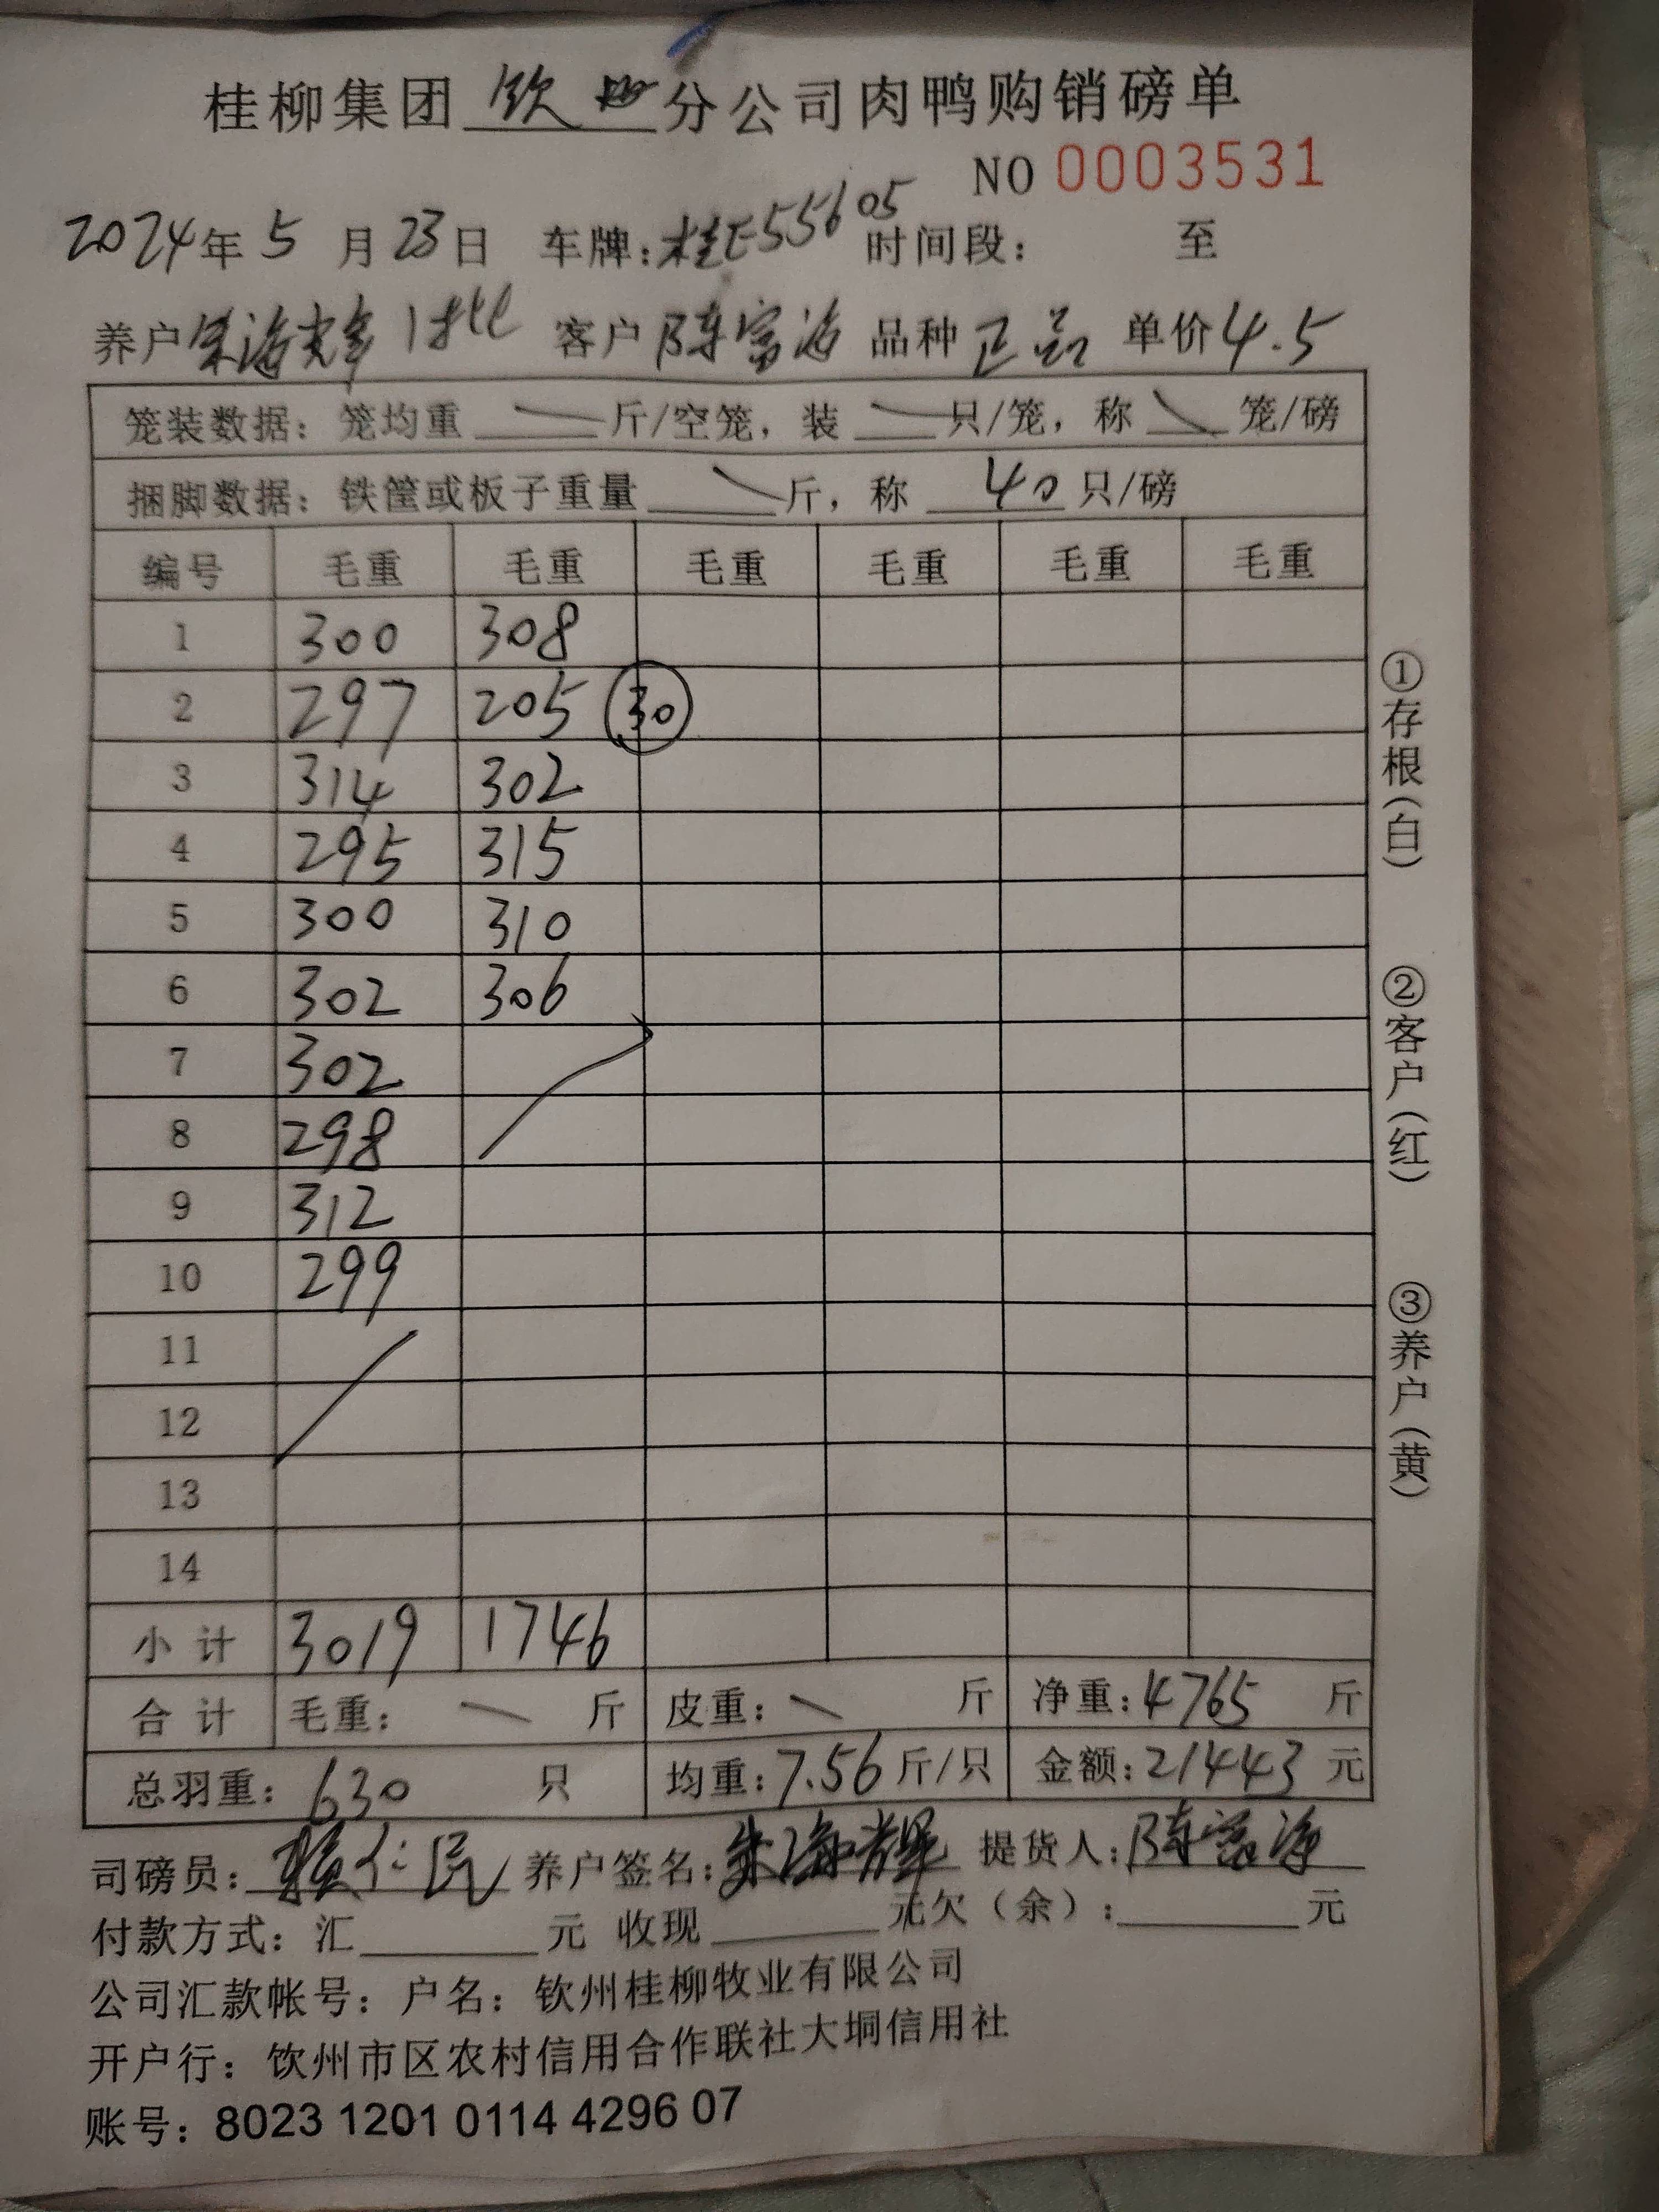 桂柳集团 钦州 分公司肉鸭购销磅单
NO 0003531
2024年 5 月 23 日 车牌: 桂E55605 时间段: 至
养户 朱海辉 1批 客户 陈富海 品种 正品 单价 4.5
笼装数据: 笼均重 斤/空笼, 装 只/笼, 称 笼/磅
捆脚数据: 铁筐或板子重量 斤, 称 40 只/磅
编号 毛重 毛重 毛重 毛重 毛重 毛重
1 300 308
2 297 205 30
3 314 302
4 295 315
5 300 310
6 302 306
7 302
8 298
9 312
10 299
11
12
13
14
小计 3019 1746
合计 毛重: 斤 皮重: 斤 净重: 4765 斤
总羽重: 630 只 均重: 7.56 斤/只 金额: 21443 元
司磅员: 仁民 养户签名: 朱海辉 提货人: 陈富海
付款方式: 汇 元 收现 元欠(余): 元
公司汇款帐号: 户名: 钦州桂柳牧业有限公司
开户行: 钦州市区农村信用合作联社大垌信用社
账号: 8023 1201 0114 4296 07
①存根(白)
②客户(红)
③养户(黄)